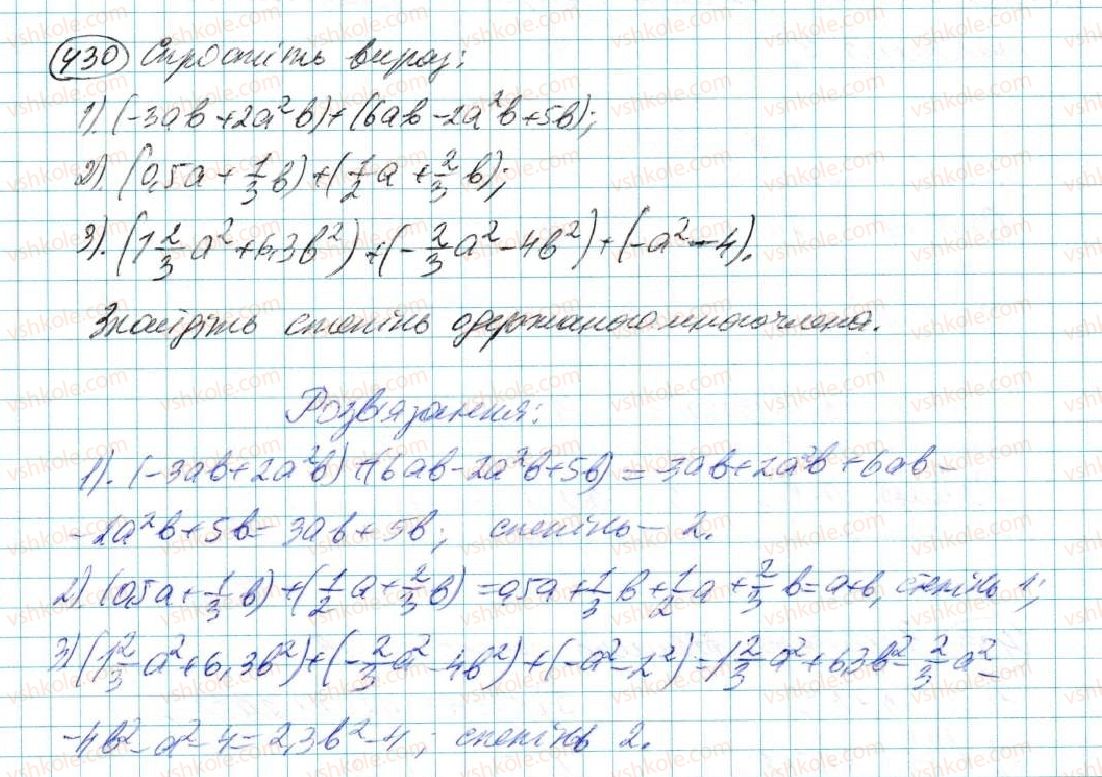 430 Спростіть вираз:
1). (-3ab + 2a²b) + (6ab - 2a²b + 5b);
2). (0,5a + 1/3 b) + (1/2 a + 2/3 b);
3). (1 2/3 a² + 6,3b²) + (-2/3 a² - 4b²) + (-a² - 4).
Знайдіть степінь одержаного многочлена.
Розв'язання:
1). (-3ab + 2a²b) + (6ab - 2a²b + 5b) = -3ab + 2a²b + 6ab -
- 2a²b + 5b = 3ab + 5b; степінь - 2.
2) (0,5a + 1/3 b) + (1/2 a + 2/3 b) = 0,5a + 1/3 b + 1/2 a + 2/3 b = a + b, степінь 1;
3) (1 2/3 a² + 6,3b²) + (-2/3 a² - 4b²) + (-a² - 2²) = 1 2/3 a² + 6,3b² - 2/3 a² -
- 4b² - a² - 4 = 2,3b² - 4; степінь 2.